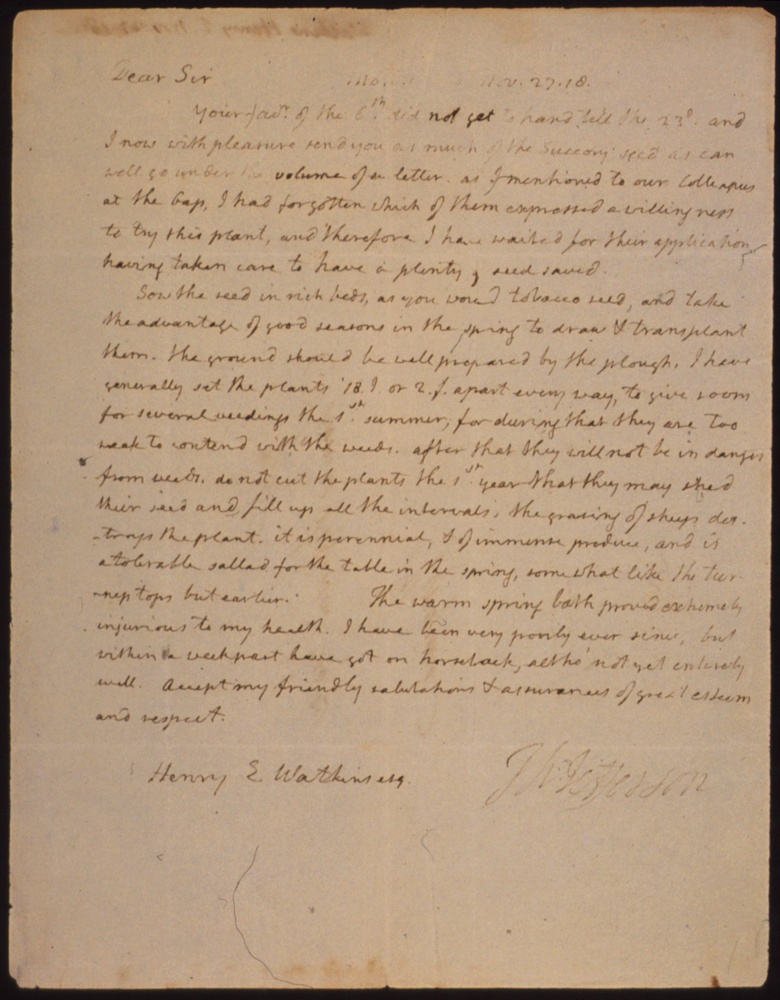 Dear Sir
Nov. 27. 18.
Your favr. of the 6th. did not get to hand till the 23d. and
I now with pleasure send you as much of the Succory seed as can
well go under the volume of a letter. as I mentioned to our Colleagues
at the Gap, I had forgotten which of them expressed a willingness
to try this plant, and therefore I have waited for their application,
having taken care to have a plenty of seed saved.
Sow the seed in rich beds, as you would tobacco seed, and take
the advantage of good seasons in the spring to draw & transplant
them. the ground should be well prepared by the plough. I have
generally set the plants 18. I. or 2. f. apart every way, to give room
for several weedings the 1st. summer; for during that they are too
weak to contend with the weeds. after that they will not be in danger
from weeds. do not cut the plants the 1st. year that they may shed
their seed and fill up all the intervals. the grazing of sheep des-
-troys the plant. it is perennial, & of immense produce, and is
a tolerable sallad for the table in the spring, somewhat like the tur-
-nep tops but earlier. The warm spring bath proved extremely
injurious to my health. I have been very poorly ever since, but
within a week past have got on horseback, altho' not yet entirely
well. Accept my friendly salutations & assurances of great esteem
and respect.
Th: Jefferson
Henry E. Watkins esq.